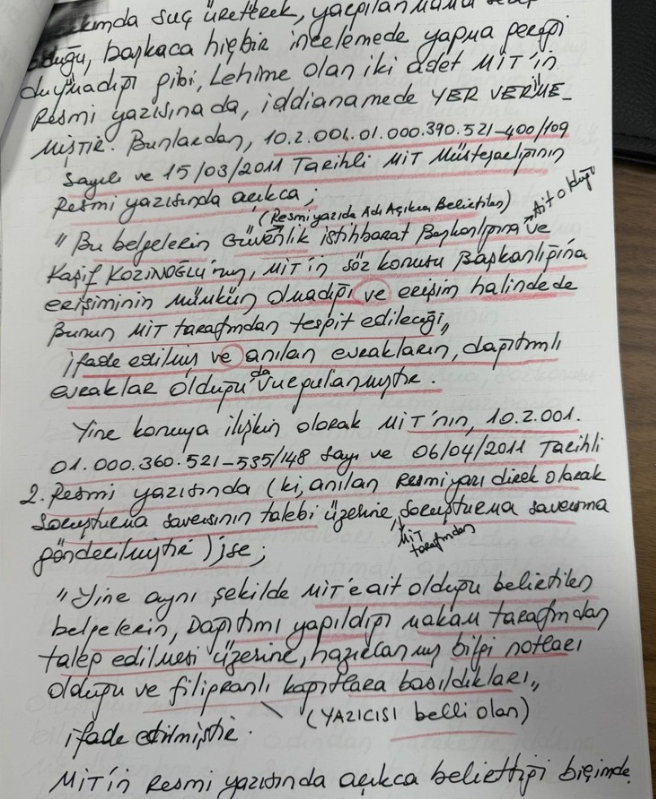 suç üreterek, yapılan
olduğu, başkaca hiçbir incelemede yapma gereği
duymadığı gibi, Lehime olan iki adet MİT'in
Resmi yazısınada, iddianamede YER VERME_
MİŞTİR. Bunlardan, 10.2.001.01.000.390.521-400/109
Sayılı ve 15/03/2011 Tarihli MİT Müsteşarlığının
Resmi yazısında açıkca;
(Resmi yazıda Adı Açıkca Belirtilen) Ait olduğu
"Bu belgelerin Güvenlik istihbarat Başkanlığına ve
Kaşif KOZİNOĞLU'nun, MİT'in söz konusu Başkanlığına
erişiminin mümkün olmadığı ve erişim halinde de
Bunun MİT tarafından tespit edileceği,,
ifade edilmiş ve anılan evrakların, dağıtımlı
evraklar olduğu da vurgulanmıştır.
Yine konuya ilişkin olarak MİT'nın, 10.2.001.
01.000.360.521-535/148 Sayı ve 06/04/2011 Tarihli
2. Resmi yazısında (ki, anılan Resmi yazı direk olarak
Soruşturma savcısının talebi üzerine, soruşturma savcısına
MİT tarafından
gönderilmiştir) ise;
"Yine aynı şekilde MİT'e ait olduğu belirtilen
belgelerin, Dağıtımı yapıldığı makam tarafından
talep edilmesi üzerine, hazırlanmış bilgi notları
olduğu ve filigranlı kağıtlara basıldıkları,,
(YAZICISI belli olan)
ifade edilmiştir.
MİT'in Resmi yazısında açıkca belirttiği biçimde